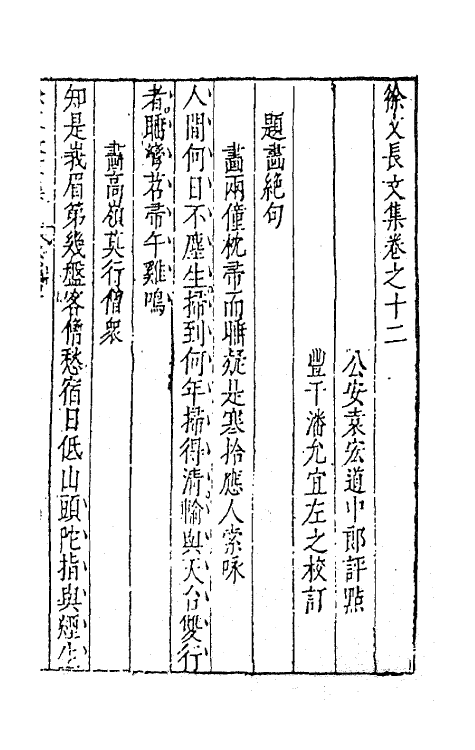 徐文長文集卷之十二
公安袁宏道中郎評點
豐干潘允宜左之校訂
題畵絶句
畵兩僮枕帚而睡疑是寒拾應人索咏
人間何日不塵生掃到何年掃得清輸與天台雙行
者睡彎苕帚午雞鳴
畵高嶺莫行僧衆
知是峩眉第幾盤客僧愁宿日低山頭陀指與經生